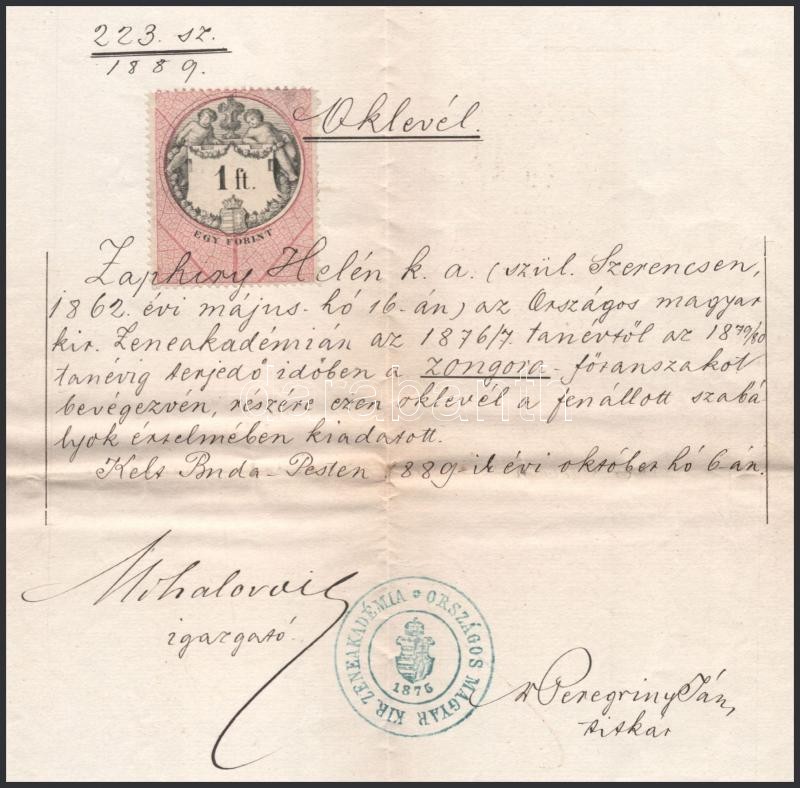 223. sz.
1889.
Oklevél.
1 ft.
EGY FORINT
Zaphiry Helén k. a. (szül. Szerencsen,
1862. évi május hó 16-án) az Országos magyar
kir. Zeneakadémián az 1876/7. tanévtől az 1879/80
tanévig terjedő időben a zongora-főtanszakot
bevégezvén, részére ezen oklevél a fenállott szabá
lyok értelmében kiadatott.
Kelt Buda-Pesten 1889-ik évi október hó 6-án.
darabanth
Mihalovich
igazgató
ORSZÁGOS MAGYAR KIR. ZENEAKADÉMIA
1875
Peregriny Ján,
titkár